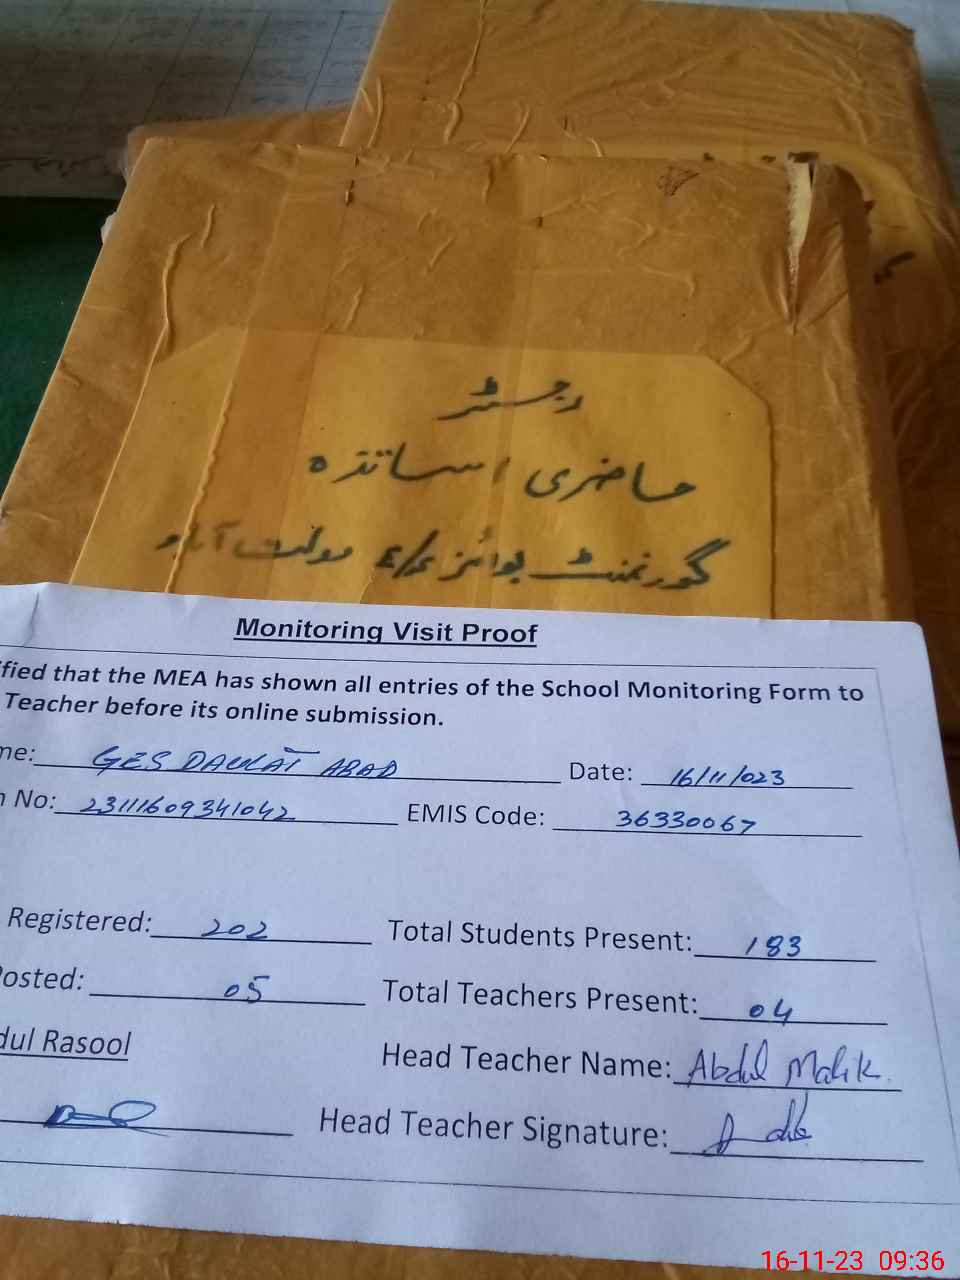 رجسٹر
حاضری اساتذہ
گورنمنٹ بوائز ای/ایس دولت آباد
Monitoring Visit Proof
ified that the MEA has shown all entries of the School Monitoring Form to
Teacher before its online submission.
me: GES DAULAT ABAD Date: 16/11/023
n No: 23111609341042 EMIS Code: 36330067
Registered: 202 Total Students Present: 183
Posted: 05 Total Teachers Present: 04
dul Rasool
Head Teacher Name: Abdul Malik
Head Teacher Signature:
16-11-23 09:36